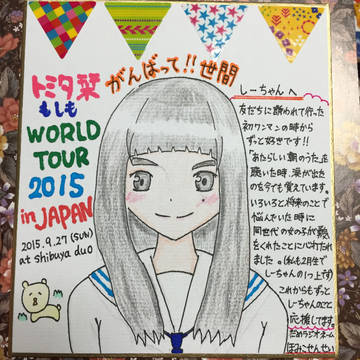 トミタ栞
もしも
WORLD
TOUR
2015
in JAPAN
2015.9.27 (SUN)
at shibuya duo
がんばって!! 世間
しーちゃんへ
友だちに誘われて行った
初ワンマンの時から
ずっと好きです!!
「あたらしい朝のうた」
聴いた時、涙が出た
のを今でも覚えています。
いろいろと将来のことで
悩んでいた時に
同世代の女の子が
をくれたことに
ました。(私も2月生で
しーちゃんの1つ上です)
これからもずっと
しーちゃんのこと
応援してます。
だめラジオネーム